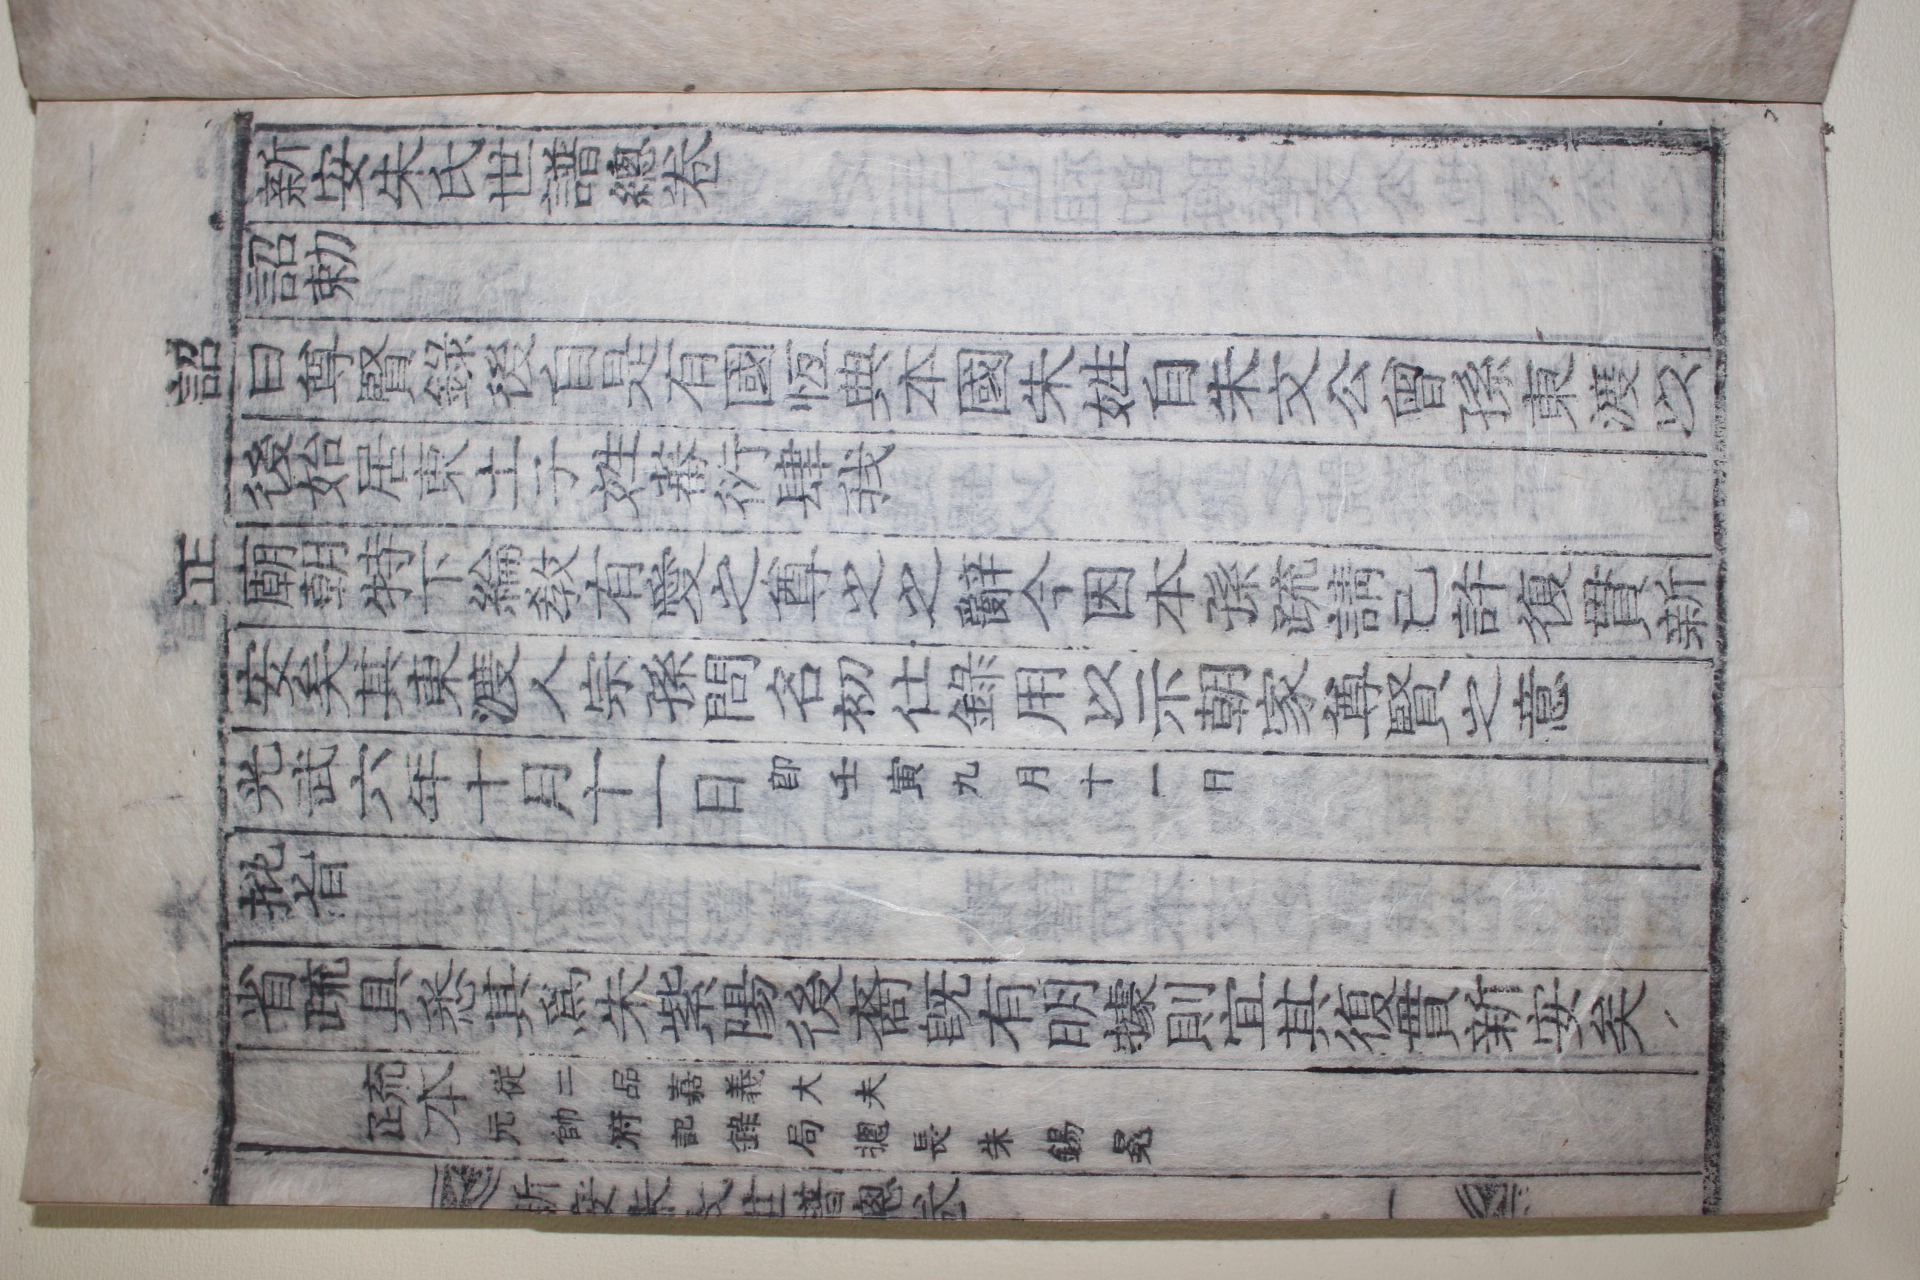 新安朱氏世譜總卷
詔勅
詔曰尊賢錄後自是有國恆典本國朱姓自朱文公曾孫東渡以
後始居東土子姓蕃衍肆我
正廟朝特下綸敎有愛之尊之之辭今因本孫疏請已許復貫新
安矣其東渡人宗孫問名初仕錄用以示朝家尊賢之意
光武六年十月十一日 卽壬寅九月十一日
批旨
省疏具悉其爲朱紫陽後裔旣有明據則宜其復貫新安矣
疏本 從二品嘉義大夫
元帥府記錄局摠長朱錫冕
新安朱氏世譜總卷 一